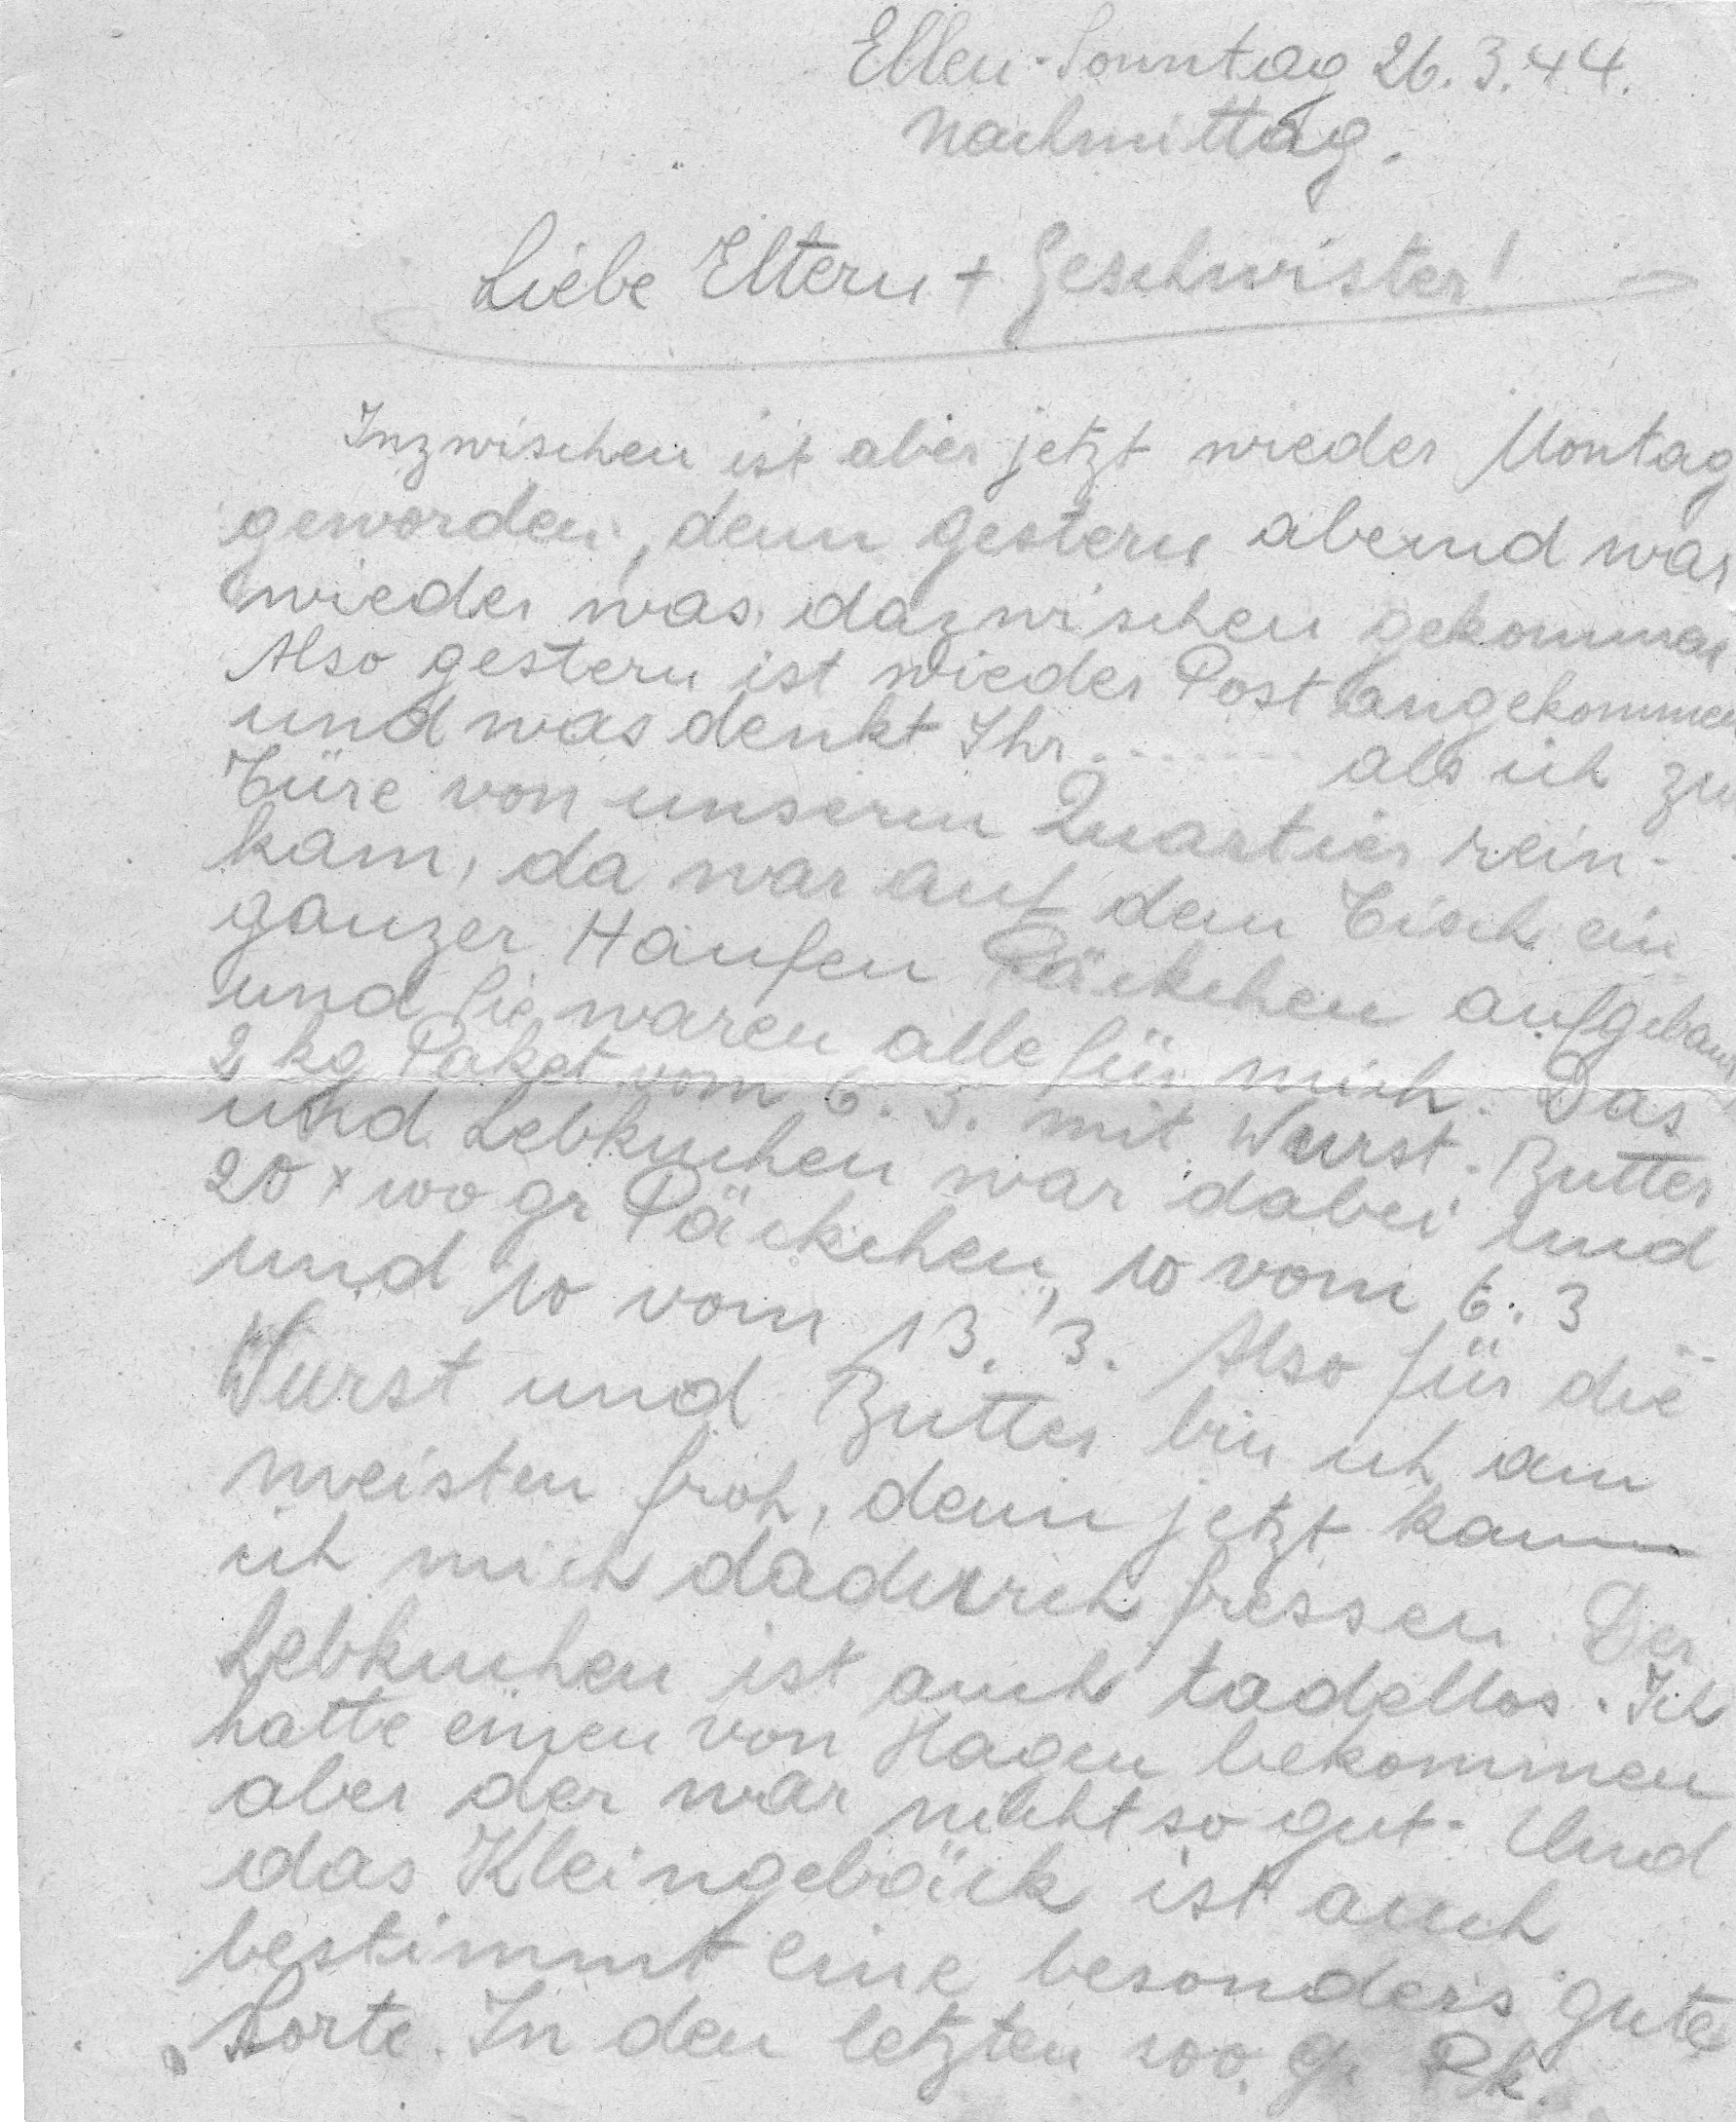 Ellen-Sonntag 26.3.44.
Nachmittag.
Liebe Eltern + Geschwister!
Inzwischen ist aber jetzt wieder Montag
geworden, denn gestern abernd war
wieder was dazwischen gekommen
Also gestern ist wieder Post angekommen
und was denkt Ihr ....... als ich zu
Türe von unserm Quartier rein-
kam, da war auf dem Tisch ein
ganzer Haufen Päckchen aufgebaut
und sie waren alle für mich. Das
2 kg Paket vom 6.3. mit Wurst-Butter
und Lebkuchen war dabei und
20 x 100 gr Päckchen, 10 vom 6.3
und 10 vom 13.3. Also für die
Wurst und Butter bin ich am
meisten froh, denn jetzt kann
ich mich dadurrch fressen. Der
Lebkuchen ist auch tadellos. Ich
hatte einen von Hagen bekommen
aber der war nicht so gut. Und
das Kleingebäck ist auch
bestimmt eine besonders gute
Sorte. In den letzten 100 gr Pk.